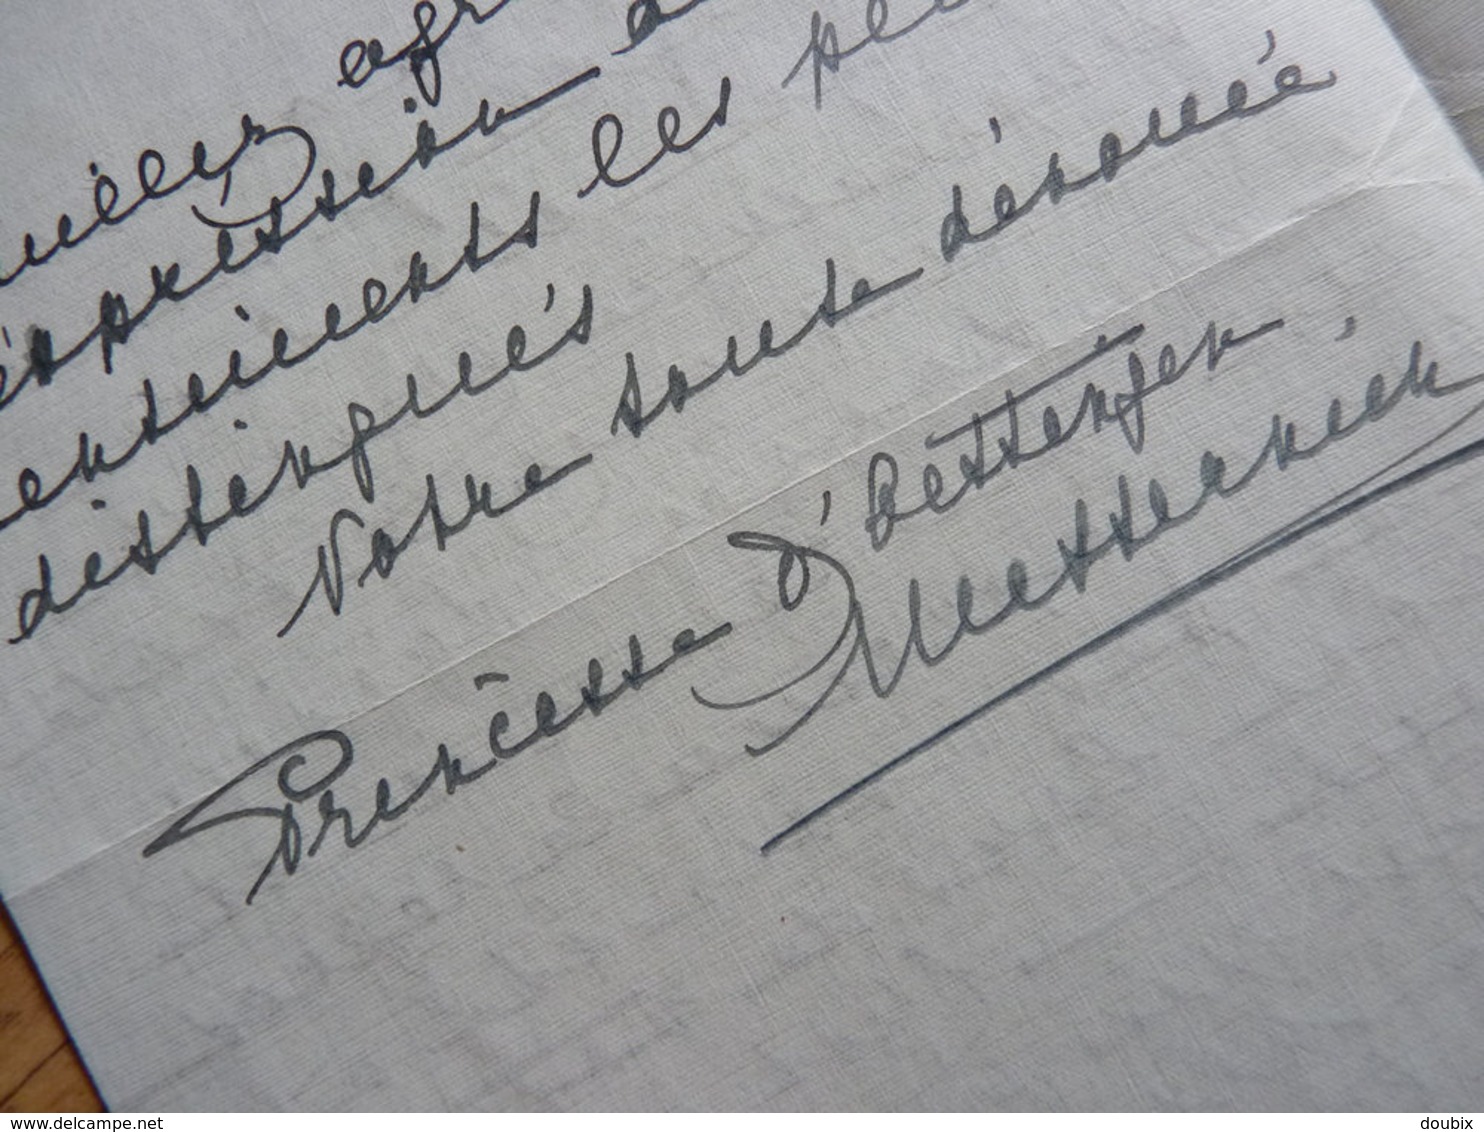 agr
expression de
sentiments les plus
distingués
Votre toute dévouée
Princesse d'Oettingen
Metternich
www.delcampe.net
doubix